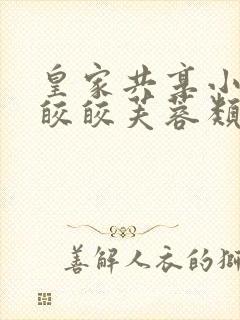 皇家共享小
皎皎芙蓉類
善解人衣的獅